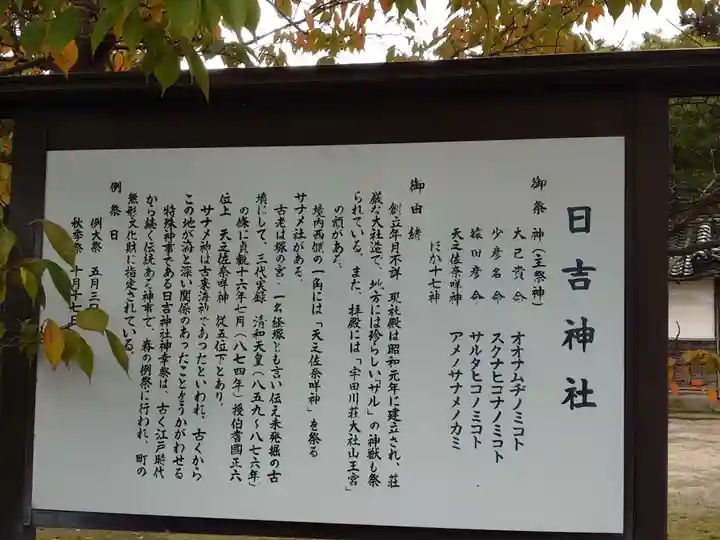 日吉神社
御祭神(主祭神)
大己貴命 オオナムヂノミコト
少彦名命 スクナヒコナノミコト
猿田彦命 サルタヒコノミコト
天之佐奈咩神 アメノサナメノカミ
ほか十七神
御由緒
創立年月不詳 現社殿は昭和元年に建立され、荘
厳な大社造で、地方には珍らしい「ザル」の神獣も祭
られている。また、拝殿には「宇田川荘大社山王宮」
の額がある。
境内西側の一角には「天之佐奈咩神」を祭る
サナメ社がある。
古老は塚の宮・一名経塚とも言い伝え未発掘の古
墳にして、三代実録 清和天皇(八五九~八七六年)
の條に貞観十六年七月(八七四年)授伯耆國正六
位上 天之佐奈咩神 従五位下とあり、
サナメ神は古来海神であったといわれ、古くから
この地が海と深い関係のあったことをうかがわせる
特殊神事である日吉神社神幸祭は、古く江戸時代
から続く伝統ある神事で、春の例祭に行われ、町の
無形文化財に指定されている。
例祭日
例大祭 五月三日
秋季祭 十月十七日